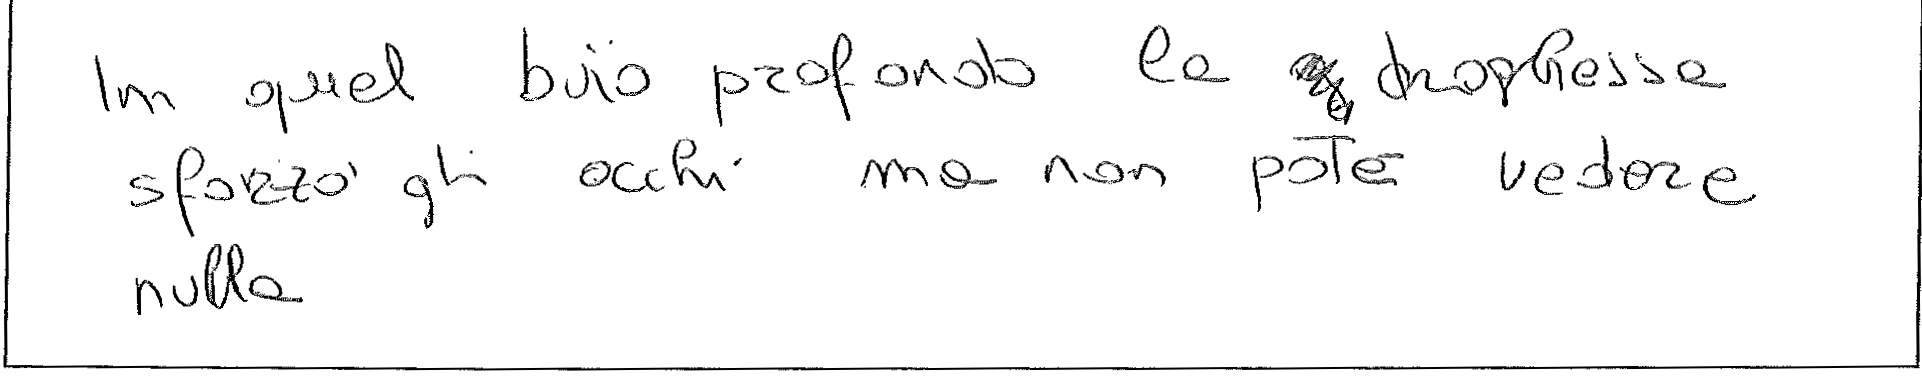 In quel buio profondo la draghessa
sforzò gli occhi ma non potè vedere
nulla